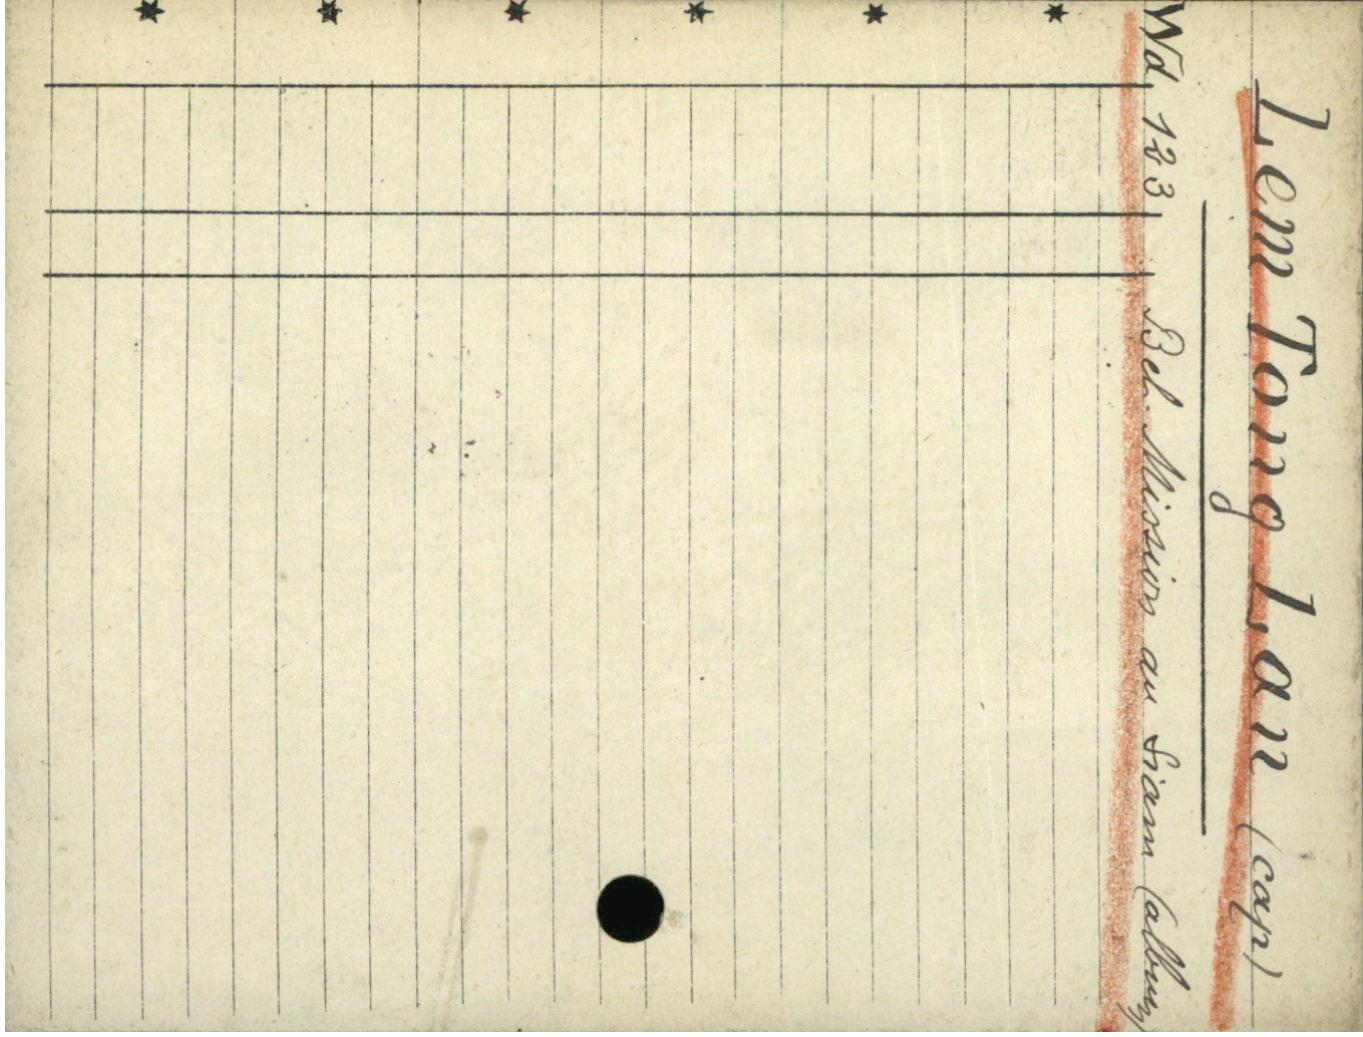 Lem Tong Lan (cap)
Wd 123 Bel. Mission au Siam (album)